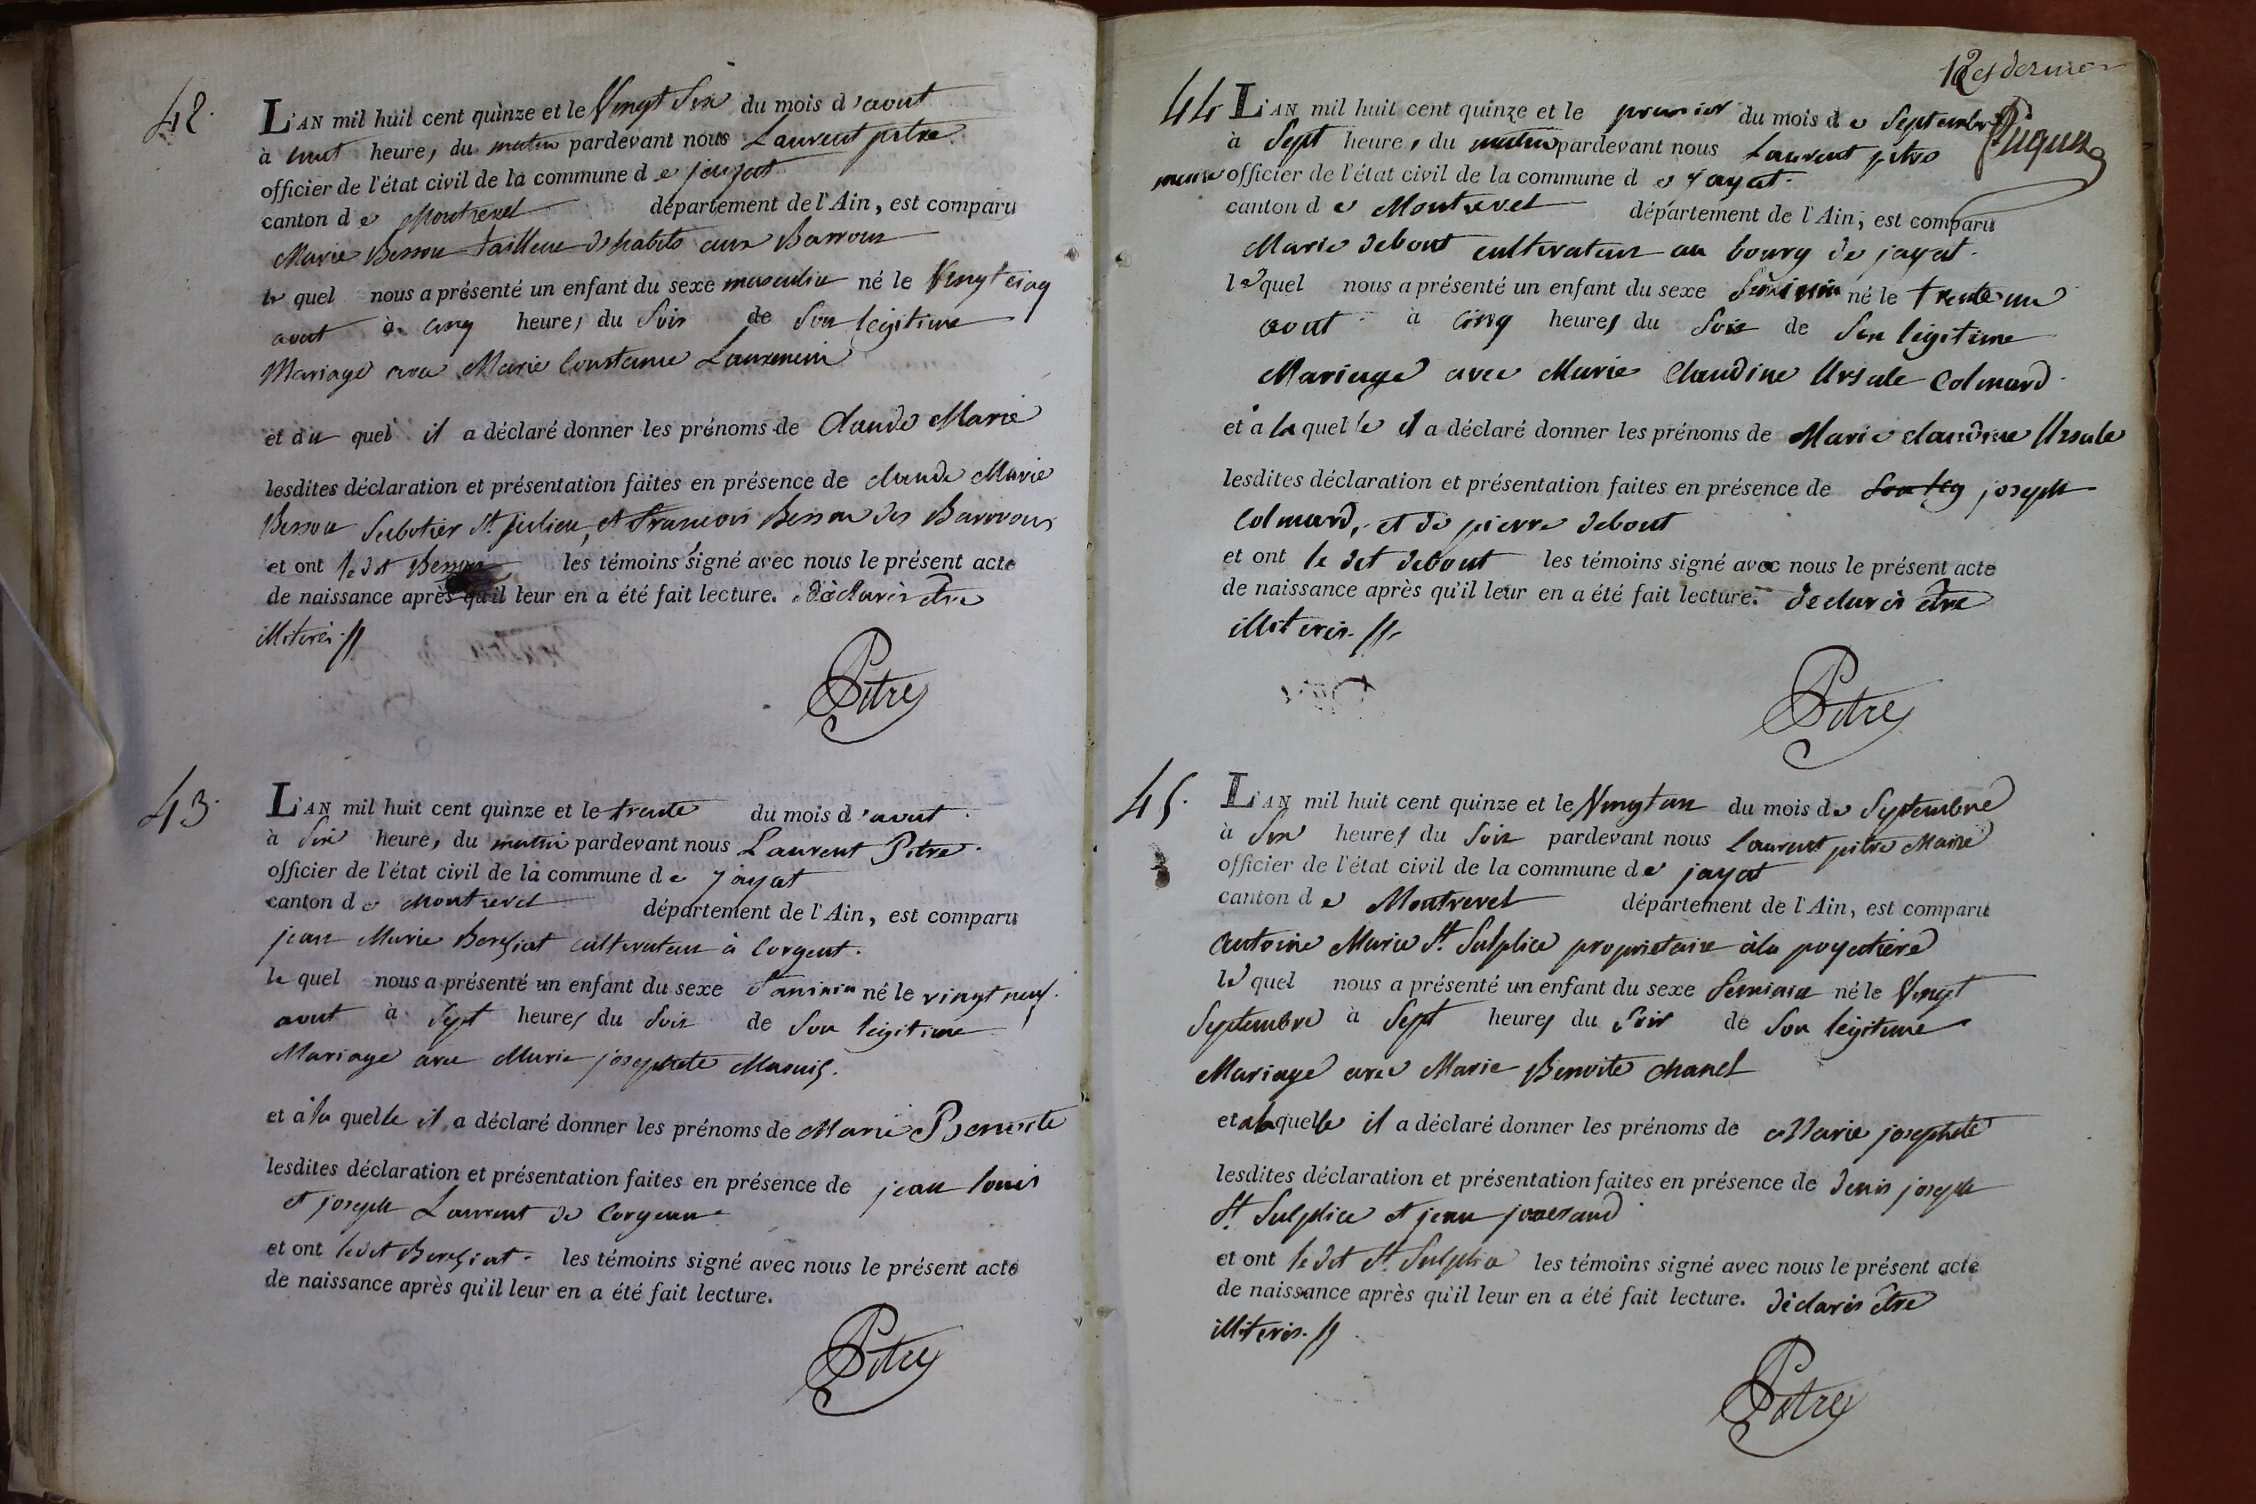 42.
L'AN mil huit cent quinze et le Vingt Six du mois d'aout
à huit heures du matin pardevant nous Laurent pitre
officier de l'état civil de la commune de jayat
canton de Montrevel département de l'Ain, est comparu
Marie Besson tailleur d'habits aux Barroux
le quel nous a présenté un enfant du sexe masculin né le Vingt cinq
aout à cinq heures du Soir de Son légitime
Mariage avec Marie Constance Laurencin
et au quel il a déclaré donner les prénoms de Claude Marie
lesdites déclaration et présentation faites en présence de claude Marie
Besson Sabotier St. julien, et francois Besson des Barroux
et ont le dit Besson les témoins signé avec nous le présent acte
de naissance après qu'il leur en a été fait lecture. déclarés être
illiterés.//
Pitre
43.
L'AN mil huit cent quinze et le trente du mois d'aout
à Six heures du matin pardevant nous Laurent Pitre
officier de l'état civil de la commune de jayat
canton de Montrevel département de l'Ain, est comparu
jean Marie Bereziat cultivateur à Corgent.
le quel nous a présenté un enfant du sexe faminin né le vingt neuf
aout à Sept heures du Soir de Son légitime
Mariage avec Marie josephete
et à la quelle il a déclaré donner les prénoms de Marie Benoite
lesdites déclaration et présentation faites en présence de jean louis
et joseph Laurent de
et ont ledit Bereziat. les témoins signé avec nous le présent acte
de naissance après qu'il leur en a été fait lecture.
Pitre
12 et dernier
44
L'AN mil huit cent quinze et le premier du mois de Septembre
à Sept heures du matin pardevant nous Laurent pitre
maire officier de l'état civil de la commune de jayat.
canton de Montrevel département de l'Ain, est comparu
Marie debout cultivateur au bourg de jayat.
le quel nous a présenté un enfant du sexe féminin né le trente un
aout à cinq heures du Soir de Son légitime
Mariage avec Marie Claudine Ursule Colmard.
et à la quelle il a déclaré donner les prénoms de Marie claudine Ursule
lesdites déclaration et présentation faites en présence de joseph
Colmard, et de pierre debout
et ont le dit debout les témoins signé avec nous le présent acte
de naissance après qu'il leur en a été fait lecture. déclarés être
illiterés.//
Pitre
45.
L'AN mil huit cent quinze et le Vingt un du mois de Septembre
à Six heures du Soir pardevant nous laurent pitre Maire
officier de l'état civil de la commune de jayat
canton de Montrevel département de l'Ain, est comparu
Antoine Marie St. Sulplice proprietaire à la poyatiere
le quel nous a présenté un enfant du sexe feminin né le Vingt
Septembre à Sept heures du Soir de Son légitime
Mariage avec Marie Benoite chanel
et à la quelle il a déclaré donner les prénoms de Marie josephete
lesdites déclaration et présentation faites en présence de denis joseph
St. Sulplice et jean
et ont le dit St. Sulplice les témoins signé avec nous le présent acte
de naissance après qu'il leur en a été fait lecture. déclarés être
illiterés.//
Pitre